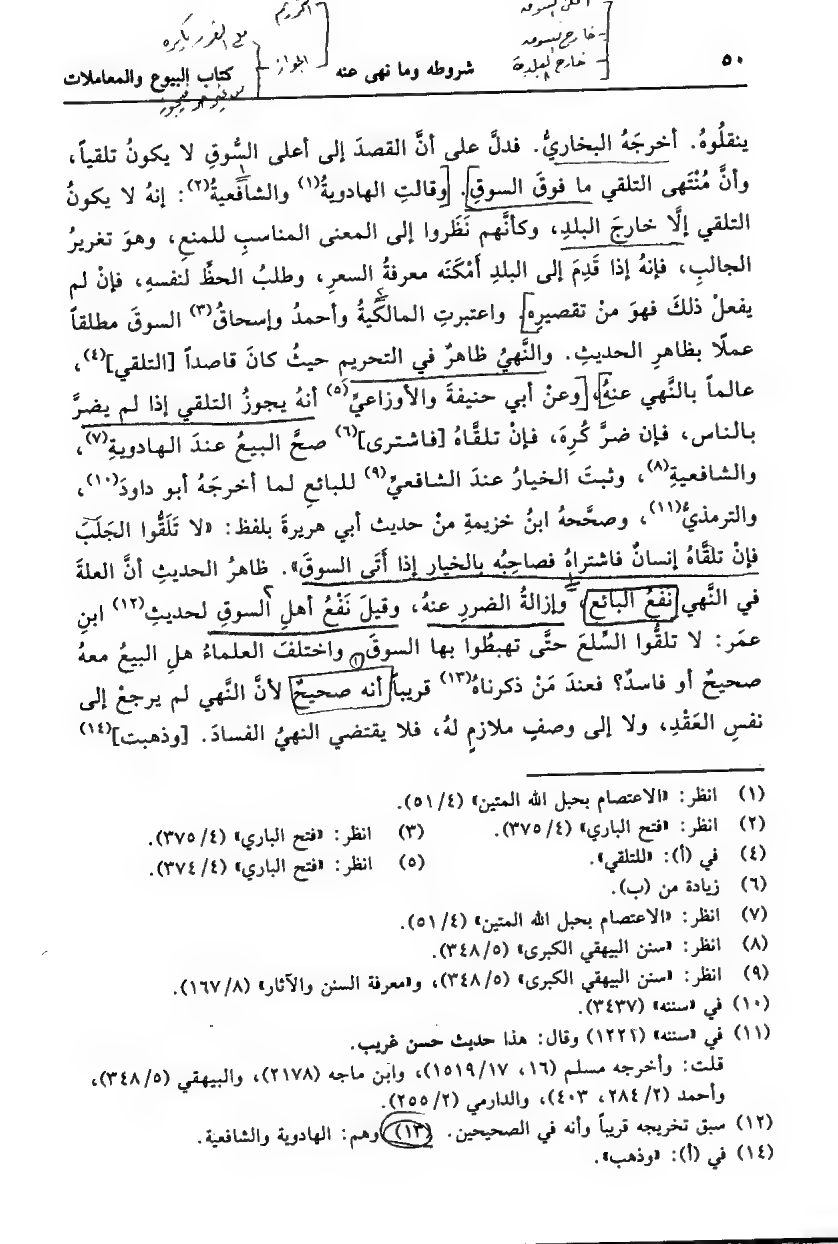 أعلى السوق
خارج السوق
خارج البلدة
الجواز
٥٠ شروطه وما نهى عنه كتاب البيوع والمعاملات
ينقلُوهُ. أخرجَهُ البخاريُّ. فدلَّ على أنَّ القصدَ إلى أعلى السُّوقِ لا يكونُ تلقياً،
وأنَّ مُنْتَهى التلقي ما فوقَ السوقِ. [وقالتِ الهادويةُ(١) والشافعيةُ(٢): إنهُ لا يكونُ
التلقي إلَّا خارجَ البلدِ، وكأنَّهم نَظَروا إلى المعنى المناسبِ للمنعِ، وهوَ تغريرُ
الجالبِ، فإنهُ إذا قَدِمَ إلى البلدِ أَمْكَنَه معرفةُ السعرِ، وطلبُ الحظِّ لنفسهِ، فإنْ لم
يفعلْ ذلكَ فهوَ منْ تقصيرِهِ]. واعتبرتِ المالكيةُ وأحمدُ وإسحاقُ(٣) السوقَ مطلقاً
عملًا بظاهرِ الحديثِ. والنَّهيُ ظاهرٌ في التحريمِ حيثُ كانَ قاصداً [التلقي](٤)،
عالماً بالنَّهي عنهُ، [وعنْ أبي حنيفةَ والأوزاعيِّ(٥) أنهُ يجوزُ التلقي إذا لم يضرَّ
بالناس، فإن ضرَّ كُرِهَ، فإنْ تلقَّاهُ [فاشترى](٦) صحَّ البيعُ عندَ الهادويةِ(٧)،
والشافعيةِ(٨)، وثبتَ الخيارُ عندَ الشافعيِّ(٩) للبائعِ لما أخرجَهُ أبو داودَ(١٠)،
والترمذيُّ(١١)، وصحَّحهُ ابنُ خزيمةِ منْ حديث أبي هريرةَ بلفظ: «لا تَلَقُّوا الجَلَبَ
فإنْ تلقَّاهُ إنسانٌ فاشتراهُ فصاحِبُه بالخيارِ إذا أَتَى السوقَ». ظاهرُ الحديثِ أنَّ العلةَ
في النَّهي نَفْعُ البائعِ، وإزالةُ الضررِ عنهُ، وقيلَ نَفْعُ أهلِ السوقِ لحديثِ(١٢) ابنِ
عمَر: لا تلقُّوا السِّلعَ حتَّى تهبطُوا بها السوقَ. واختلفَ العلماءُ هلِ البيعُ معهُ
صحيحٌ أو فاسدٌ؟ فعندَ مَنْ ذكرناهُ(١٣) قريباً أنه صحيحٌ لأنَّ النَّهي لم يرجعْ إلى
نفسِ العَقْدِ، ولا إلى وصفٍ ملازمٍ لهُ، فلا يقتضي النهيُ الفسادَ. [وذهبت](١٤)
(١) انظر: «الاعتصام بحبل الله المتين» (٥١/٤).
(٢) انظر: «فتح الباري» (٣٧٥/٤). (٣) انظر: «فتح الباري» (٣٧٥/٤).
(٤) في (أ): «للتلقي». (٥) انظر: «فتح الباري» (٣٧٤/٤).
(٦) زيادة من (ب).
(٧) انظر: «الاعتصام بحبل الله المتين» (٥١/٤).
(٨) انظر: «سنن البيهقي الكبرى» (٣٤٨/٥).
(٩) انظر: «سنن البيهقي الكبرى» (٣٤٨/٥)، و«معرفة السنن والآثار» (١٦٧/٨).
(١٠) في «سننه» (٣٤٣٧).
(١١) في «سننه» (١٢٢١) وقال: هذا حديث حسن غريب.
قلت: وأخرجه مسلم (١٦، ١٥١٩/١٧)، وابن ماجه (٢١٧٨)، والبيهقي (٣٤٨/٥)،
وأحمد (٢٨٤/٢، ٤٠٣)، والدارمي (٢٥٥/٢).
(١٢) سبق تخريجه قريباً وأنه في الصحيحين. (١٣) وهم: الهادوية والشافعية.
(١٤) في (أ): «وذهب».